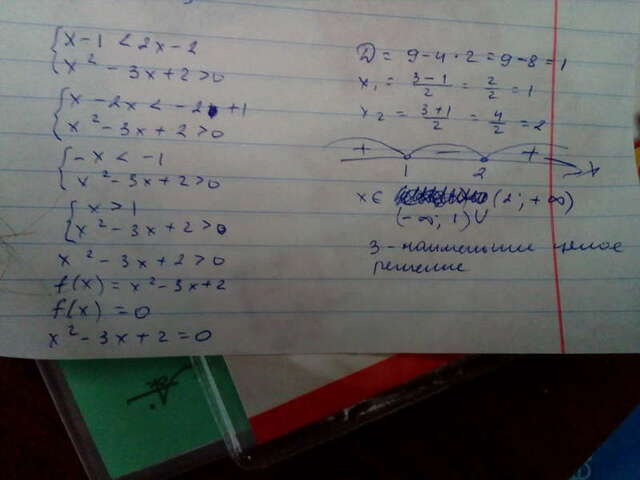 { x - 1 < 2x - 2
{ x² - 3x + 2 > 0
{ x - 2x < - 2 + 1
{ x² - 3x + 2 > 0
{ - x < - 1
{ x² - 3x + 2 > 0
{ x > 1
{ x² - 3x + 2 > 0
x² - 3x + 2 > 0
f(x) = x² - 3x + 2
f(x) = 0
x² - 3x + 2 = 0
D = 9 - 4 · 2 = 9 - 8 = 1
x₁ = (3 - 1)/2 = 2/2 = 1
x₂ = (3 + 1)/2 = 4/2 = 2
+ - +
1 2 x
x ∈ (2; + ∞)
(- ∞; 1) U
3 - наименьшее целое
решение